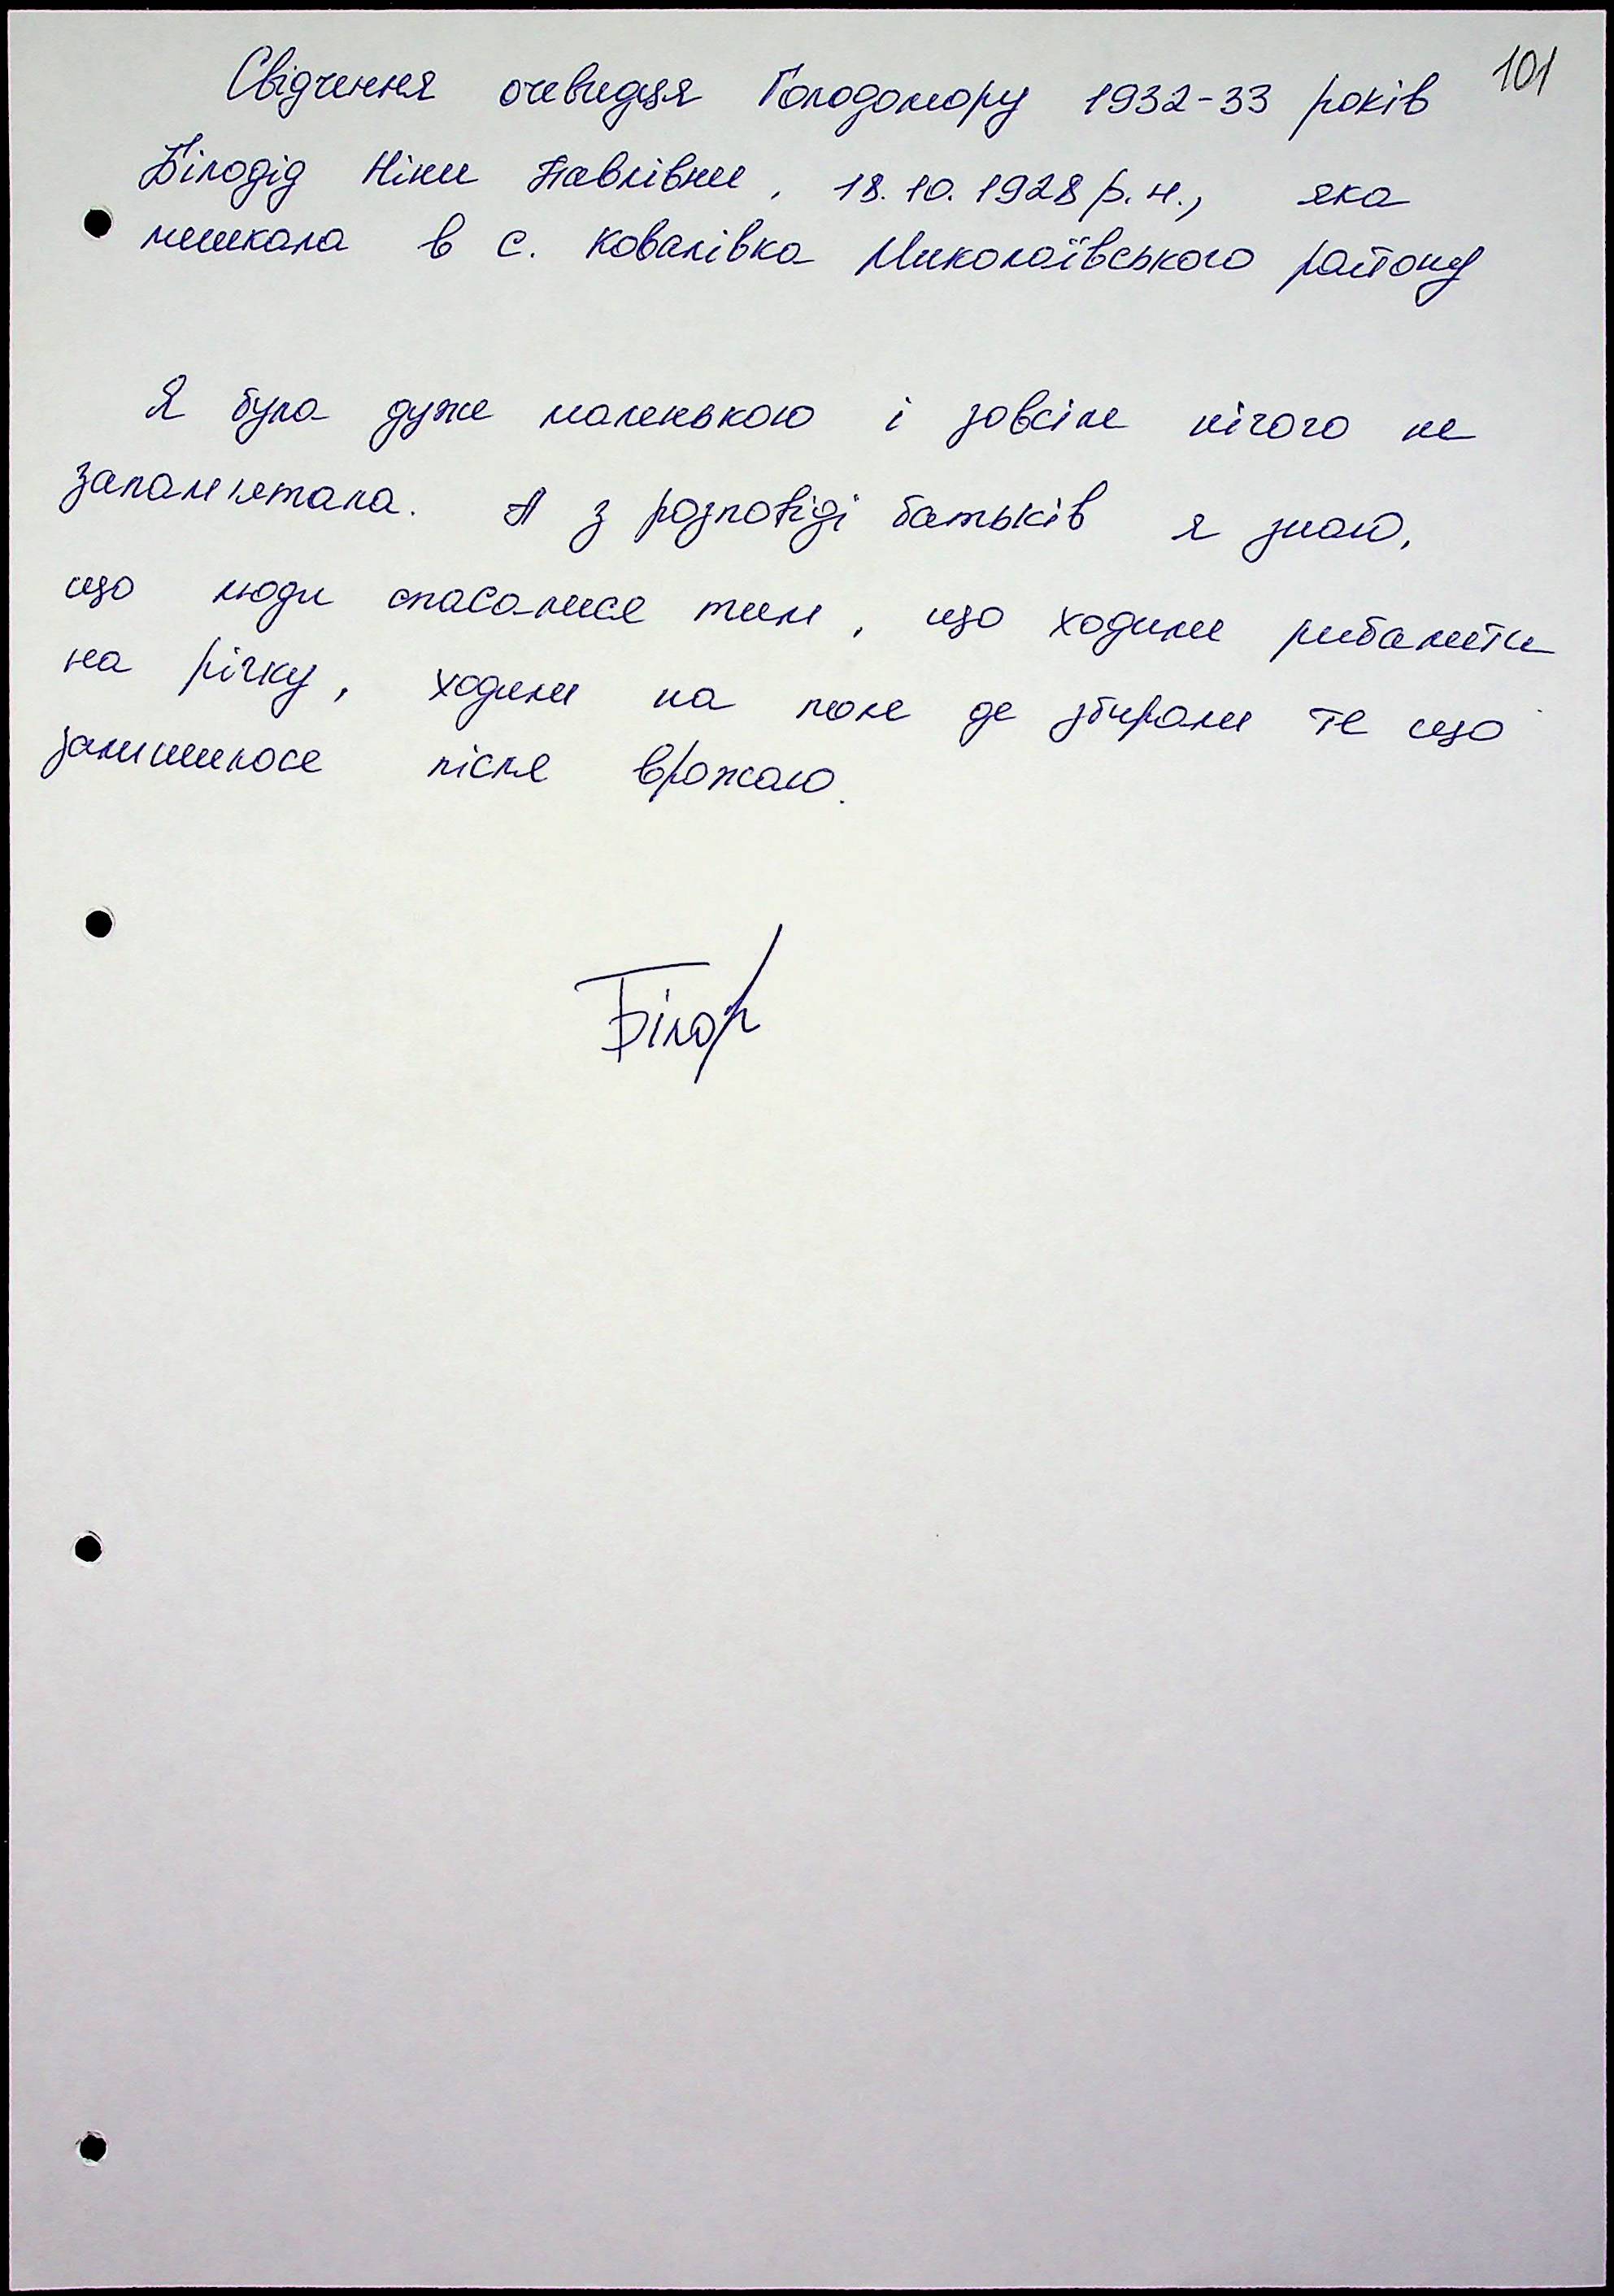 101
Свідчення очевидця Голодомору 1932-33 років
Білодід Ніни Павлівни, 18.10.1928 р.н., яка
мешкала в с. Ковалівка Миколаївського району
Я була дуже маленькою і зовсім нічого не
запам'ятала. А з розповіді батьків я знаю,
що люди спасалися тим, що ходили рибалити
на річку, ходили на поле де збирали те що
залишилося після врожаю.
Білод